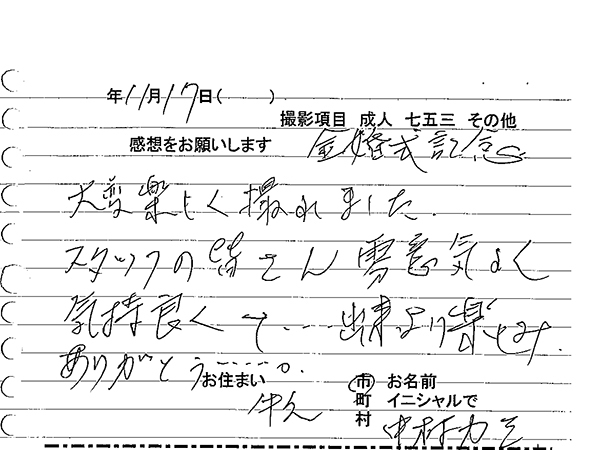 年11月17日(　　)
撮影項目 成人 七五三 その他
感想をお願いします 金婚式記念
大変楽しく撮れました.
スタッフの皆さん 雰意気よく
気持良くて…. 出来上り楽しみ.
ありがとう……。
お住まい ㊞市 お名前
牛久 町 イニシャルで
村 中村